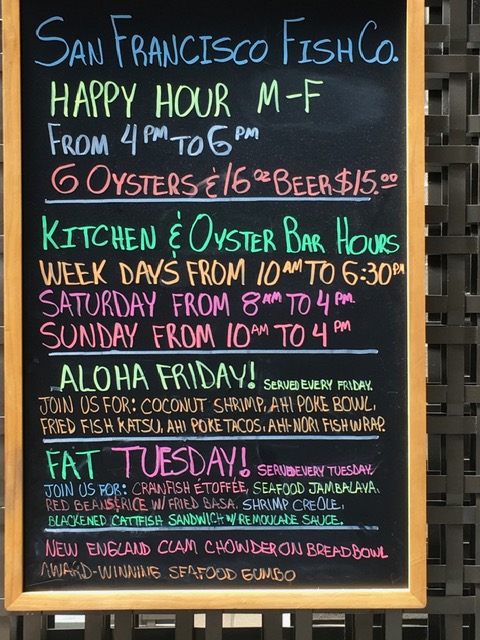 SAN FRANCISCO FISH CO.
HAPPY HOUR M-F
FROM 4PM TO 6PM
6 OYSTERS & 16oz BEER $15.00
KITCHEN & OYSTER BAR HOURS
WEEK DAYS FROM 10AM TO 6:30PM
SATURDAY FROM 8AM TO 4PM.
SUNDAY FROM 10AM TO 4PM
ALOHA FRIDAY! SERVED EVERY FRIDAY.
JOIN US FOR: COCONUT SHRIMP, AHI POKE BOWL,
FRIED FISH KATSU, AHI POKE TACOS, AHI-NORI FISH WRAP.
FAT TUESDAY! SERVED EVERY TUESDAY.
JOIN US FOR: CRAWFISH ÉTOFFÉE, SEAFOOD JAMBALAYA,
RED BEANS & RICE W/ FRIED BASA, SHRIMP CREOLE,
BLACKENED CATFISH SANDWICH W/ REMOULADE SAUCE.
NEW ENGLAND CLAM CHOWDER ON BREADBOWL
AWARD-WINNING SEAFOOD GUMBO